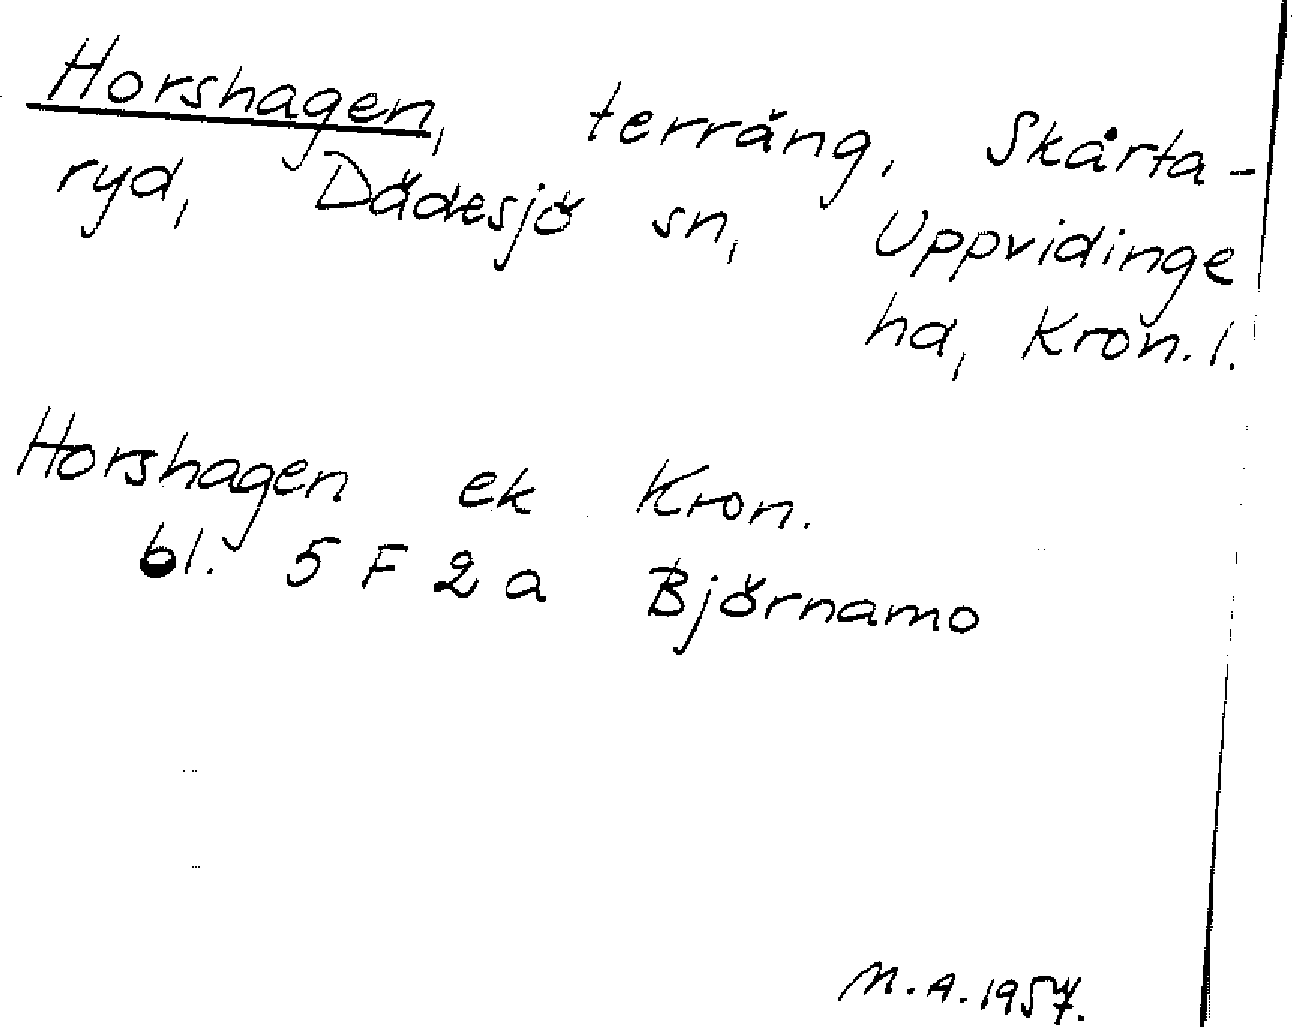 Horshagen, terräng, Skårta-
ryd, Dädesjö sn, Uppvidinge
hd, Kron. l.
Horshagen ek Kron.
bl. 5 F 2 a Björnamo
M.A. 1957.